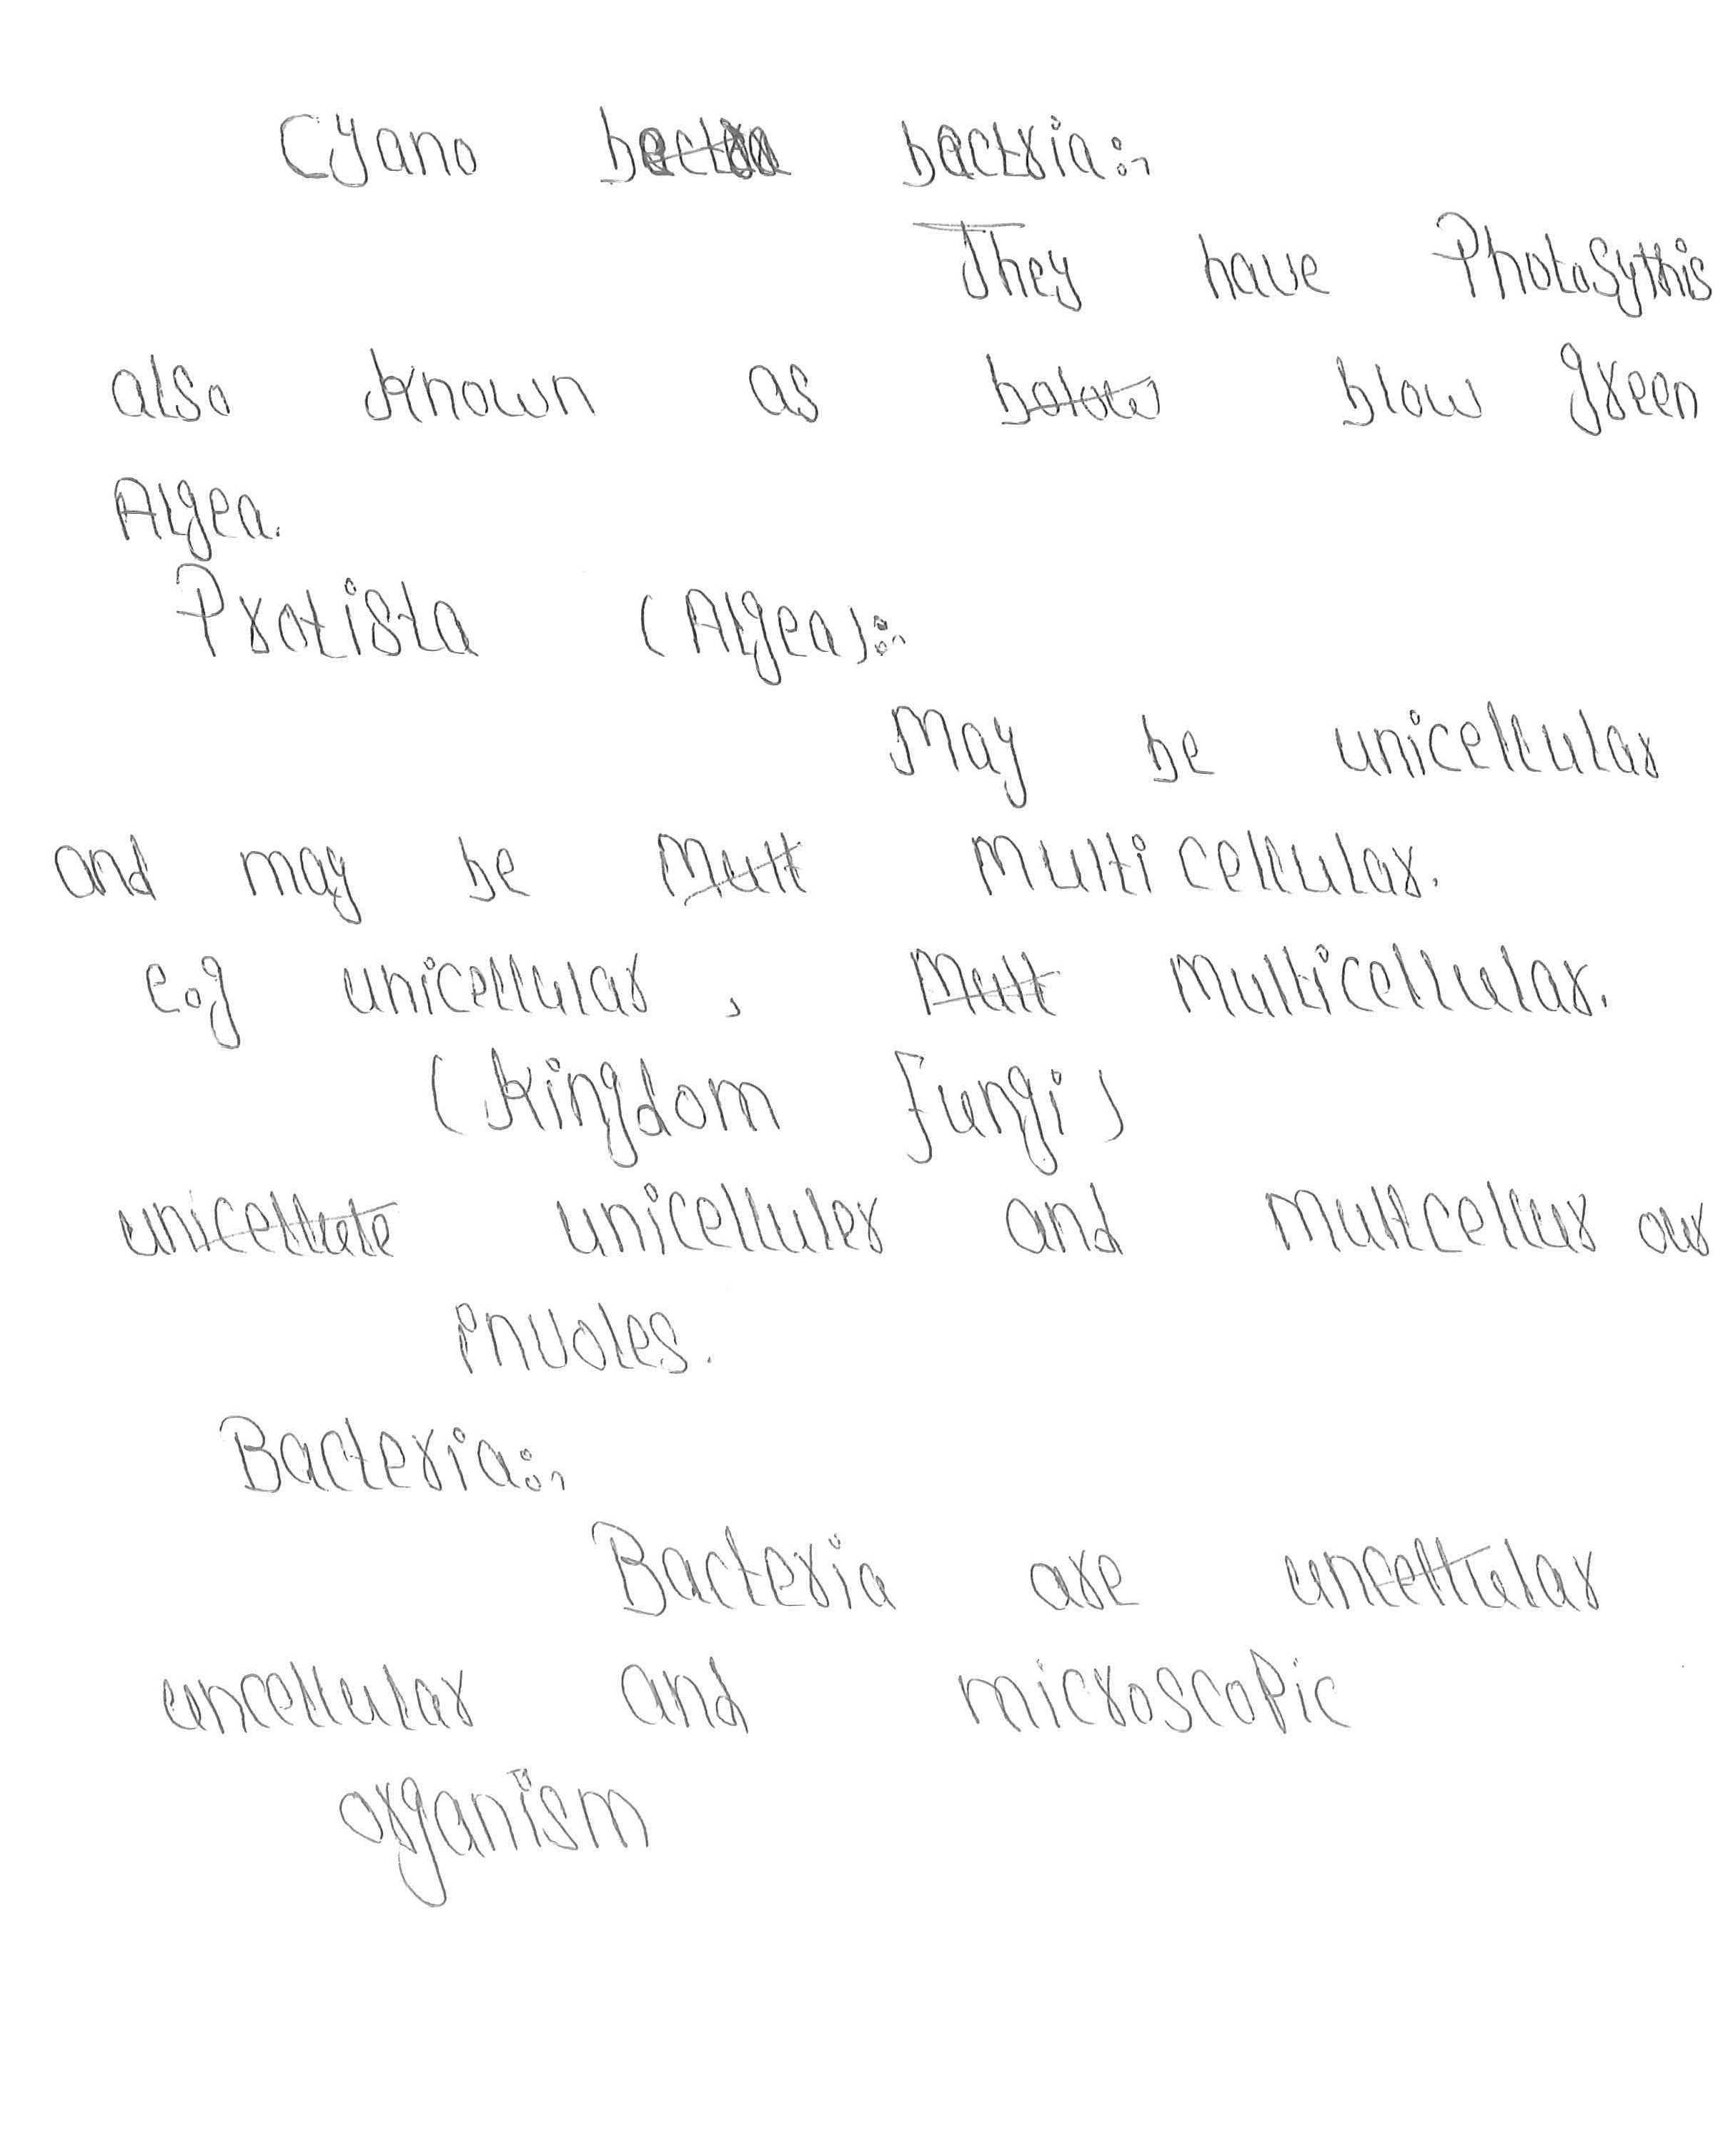 Cyano bactria:
They have PhotoSythis
also known as blow green
Algea.
Protista (Algea):
May be unicellular
and may be multi cellular.
e.g unicellular, multicellular.
(Kingdom Fungi)
unicelluler and multcellur ar
involes.
Bacteria:
Bacteria are uncellular
uncellular and microscopic
organism